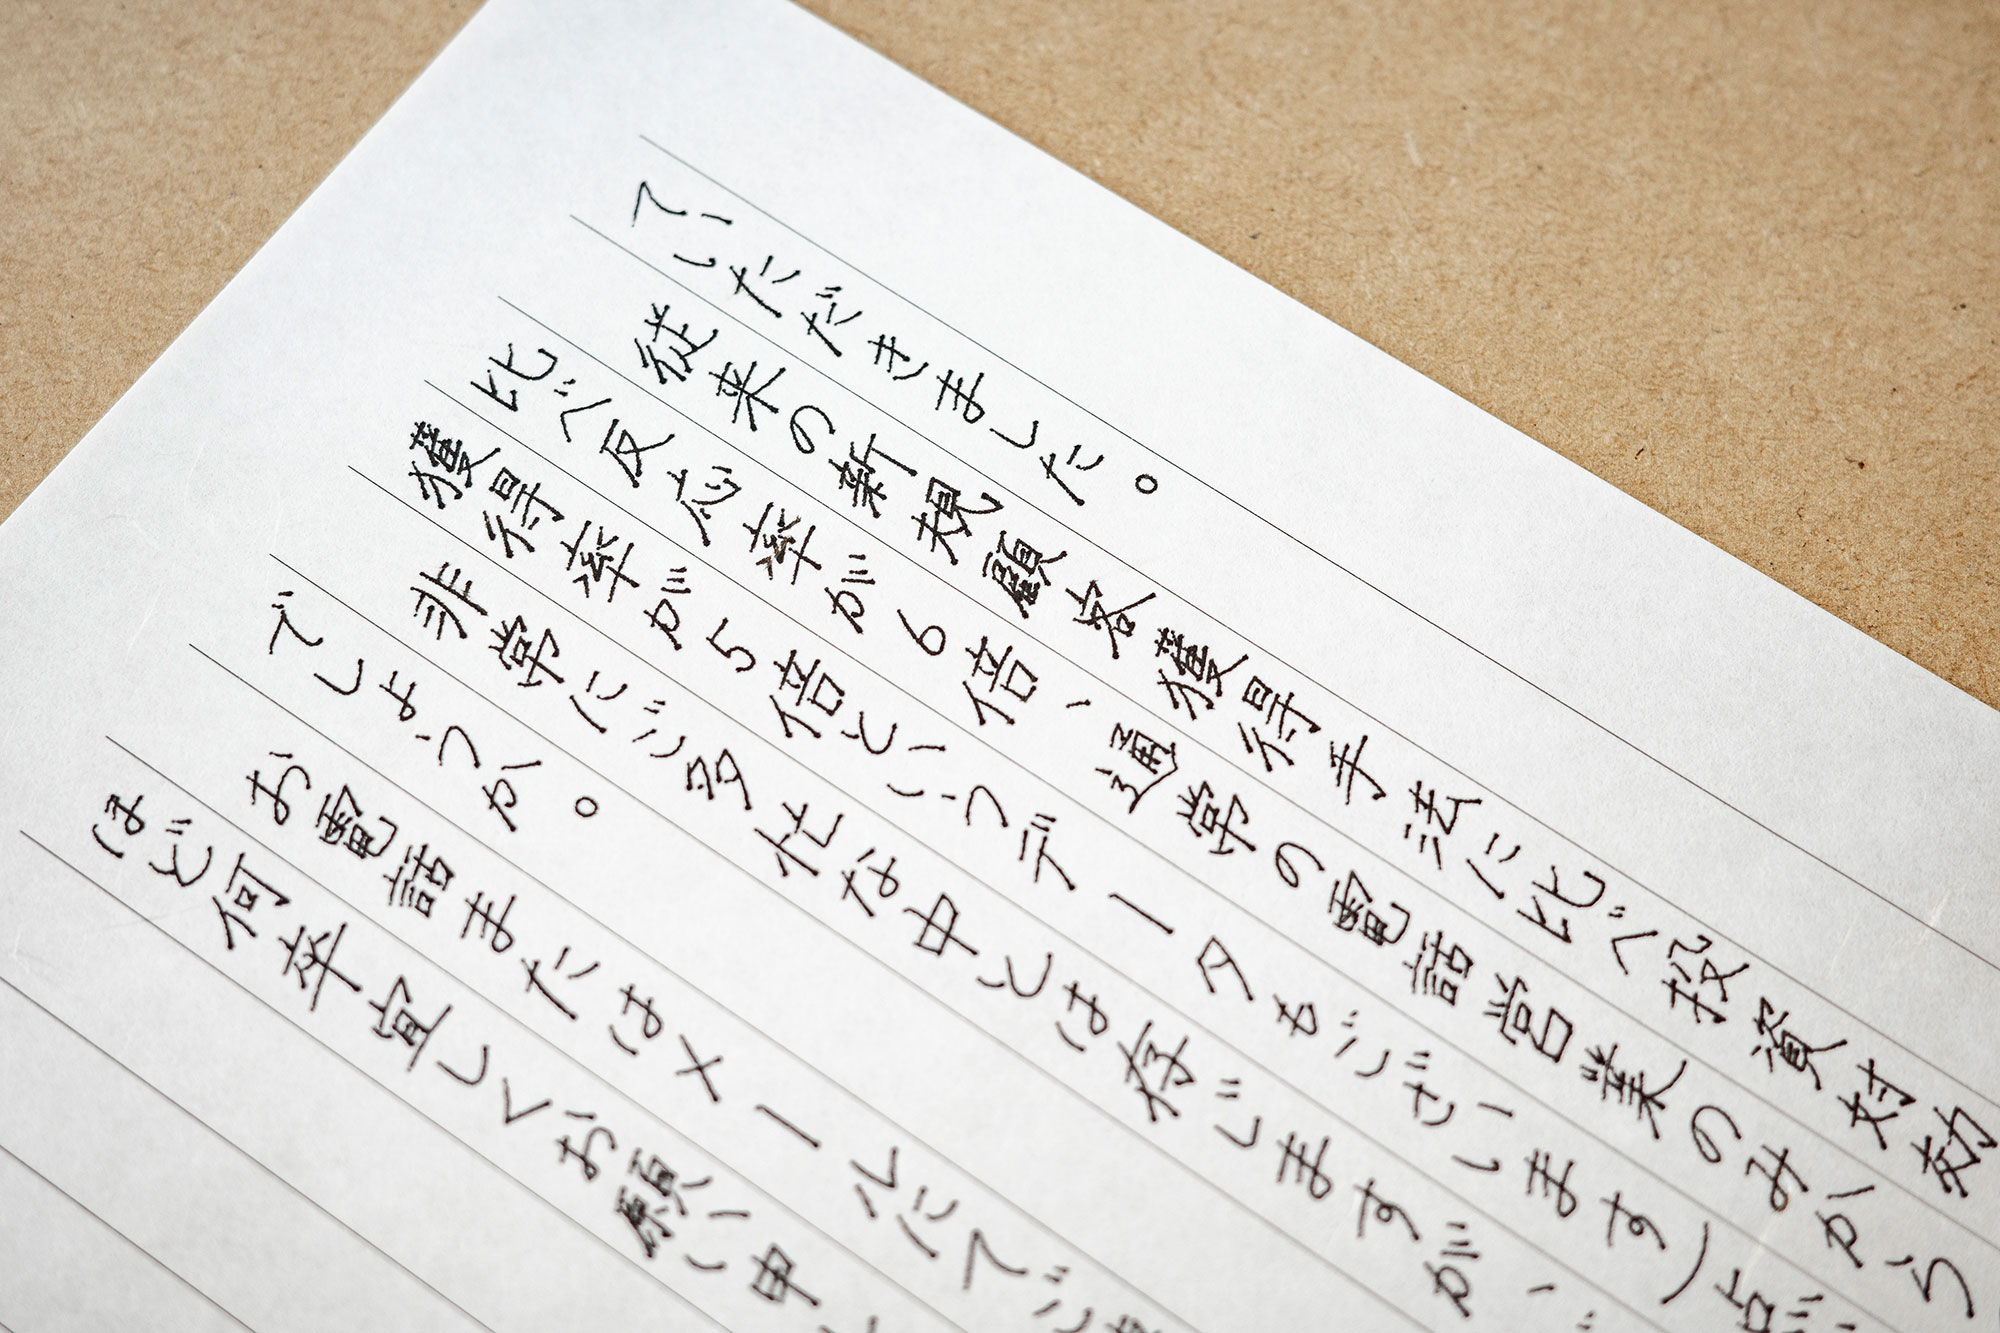 ていただきました。
従来の新規顧客獲得手法に比べ投資対効
比べ反応率が6倍、通常の電話営業のみから
獲得率が5倍というデータもございます)点
非常にご多忙な中とは存じますが、
でしょうか。
お電話またはメールにてご
ほど何卒宜しくお願い申